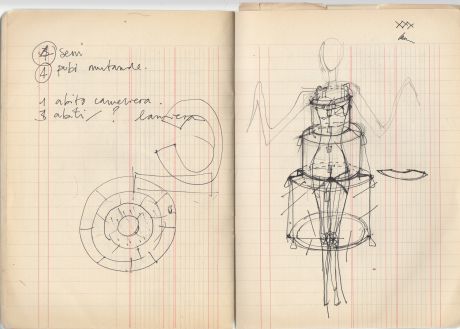 seni
4 pubi mutande.
1 abito cameriera.
3 abiti/ ?
XXX